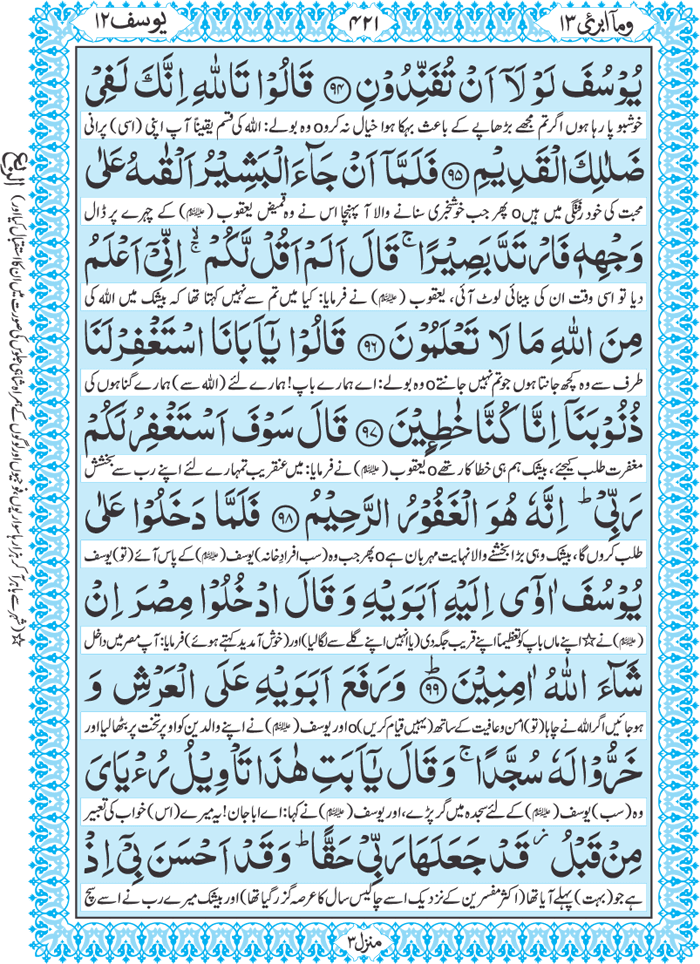 وما ابرئ ١٣
٤٢١
یوسف ١٢
یُوْسُفَ لَوْ لَاۤ اَنْ تُفَنِّدُوْنِ ﴿٩٤﴾ قَالُوْا تَاللّٰهِ اِنَّكَ لَفِیْ
خوشبو پا رہا ہوں اگر تم مجھے بڑھاپے کے باعث بہکا ہوا خیال نہ کروo وہ بولے: اللہ کی قسم یقیناً آپ اپنی (اسی) پرانی
ضَلٰلِكَ الْقَدِیْمِ ﴿٩٥﴾ فَلَمَّاۤ اَنْ جَآءَ الْبَشِیْرُ اَلْقٰىهُ عَلٰی
محبت کی خود رفتگی میں ہیںo پھر جب خوشخبری سنانے والا آ پہنچا اس نے وہ قمیض یعقوب (علیہ السلام) کے چہرے پر ڈال
وَجْهِهٖ فَارْتَدَّ بَصِیْرًا ۚ قَالَ اَلَمْ اَقُلْ لَّكُمْ ۙۚ اِنِّیْۤ اَعْلَمُ
دیا تو اسی وقت ان کی بینائی لوٹ آئی، یعقوب (علیہ السلام) نے فرمایا: کیا میں تم سے نہیں کہتا تھا کہ بیشک میں اللہ کی
مِنَ اللّٰهِ مَا لَا تَعْلَمُوْنَ ﴿٩٦﴾ قَالُوْا یٰۤاَبَانَا اسْتَغْفِرْ لَنَا
طرف سے وہ کچھ جانتا ہوں جو تم نہیں جانتےo وہ بولے: اے ہمارے باپ! ہمارے لئے (اللہ سے) ہمارے گناہوں کی
ذُنُوْبَنَاۤ اِنَّا كُنَّا خٰطِـِٕیْنَ ﴿٩٧﴾ قَالَ سَوْفَ اَسْتَغْفِرُ لَكُمْ
مغفرت طلب کیجئے، بیشک ہم ہی خطاکار تھےo یعقوب (علیہ السلام) نے فرمایا: میں عنقریب تمہارے لئے اپنے رب سے بخشش
رَبِّیْ ؕ اِنَّهٗ هُوَ الْغَفُوْرُ الرَّحِیْمُ ﴿٩٨﴾ فَلَمَّا دَخَلُوْا عَلٰی
طلب کروں گا، بیشک وہی بڑا بخشنے والا نہایت مہربان ہےo پھر جب وہ (سب افرادِ خانہ) یوسف (علیہ السلام) کے پاس آئے (تو) یوسف
یُوْسُفَ اٰوٰۤی اِلَیْهِ اَبَوَیْهِ وَ قَالَ ادْخُلُوْا مِصْرَ اِنْ
(علیہ السلام) نے☆ اپنے ماں باپ کو تعظیماً اپنے قریب جگہ دی (یا انہیں اپنے گلے سے لگا لیا) اور (خوش آمدید کہتے ہوئے) فرمایا: آپ مصر میں داخل
شَآءَ اللّٰهُ اٰمِنِیْنَ ﴿٩٩﴾ؕ وَ رَفَعَ اَبَوَیْهِ عَلَی الْعَرْشِ وَ
ہو جائیں اگر اللہ نے چاہا (تو) امن و عافیت کے ساتھ (یہیں قیام کریں)o اور یوسف (علیہ السلام) نے اپنے والدین کو اوپر تخت پر بٹھا لیا اور
خَرُّوْا لَهٗ سُجَّدًا ۚ وَ قَالَ یٰۤاَبَتِ هٰذَا تَاْوِیْلُ رُءْیَایَ
وہ (سب) یوسف (علیہ السلام) کے لئے سجدہ میں گر پڑے، اور یوسف (علیہ السلام) نے کہا: اے ابا جان! یہ میرے (اس) خواب کی تعبیر
مِنْ قَبْلُ ؗ قَدْ جَعَلَهَا رَبِّیْ حَقًّا ؕ وَ قَدْ اَحْسَنَ بِیْۤ اِذْ
ہے جو (بہت) پہلے آیا تھا (اکثر مفسرین کے نزدیک اسے چالیس سال کا عرصہ گزر گیا تھا) اور بیشک میرے رب نے اسے سچ
منزل ٣
الربع
☆ (شہر سے باہر آ کر ہزارہا سواریوں، فوجیوں اور لوگوں کے ہمراہ شاہی جلوس کی صورت میں ان کا استقبال کیا اور)